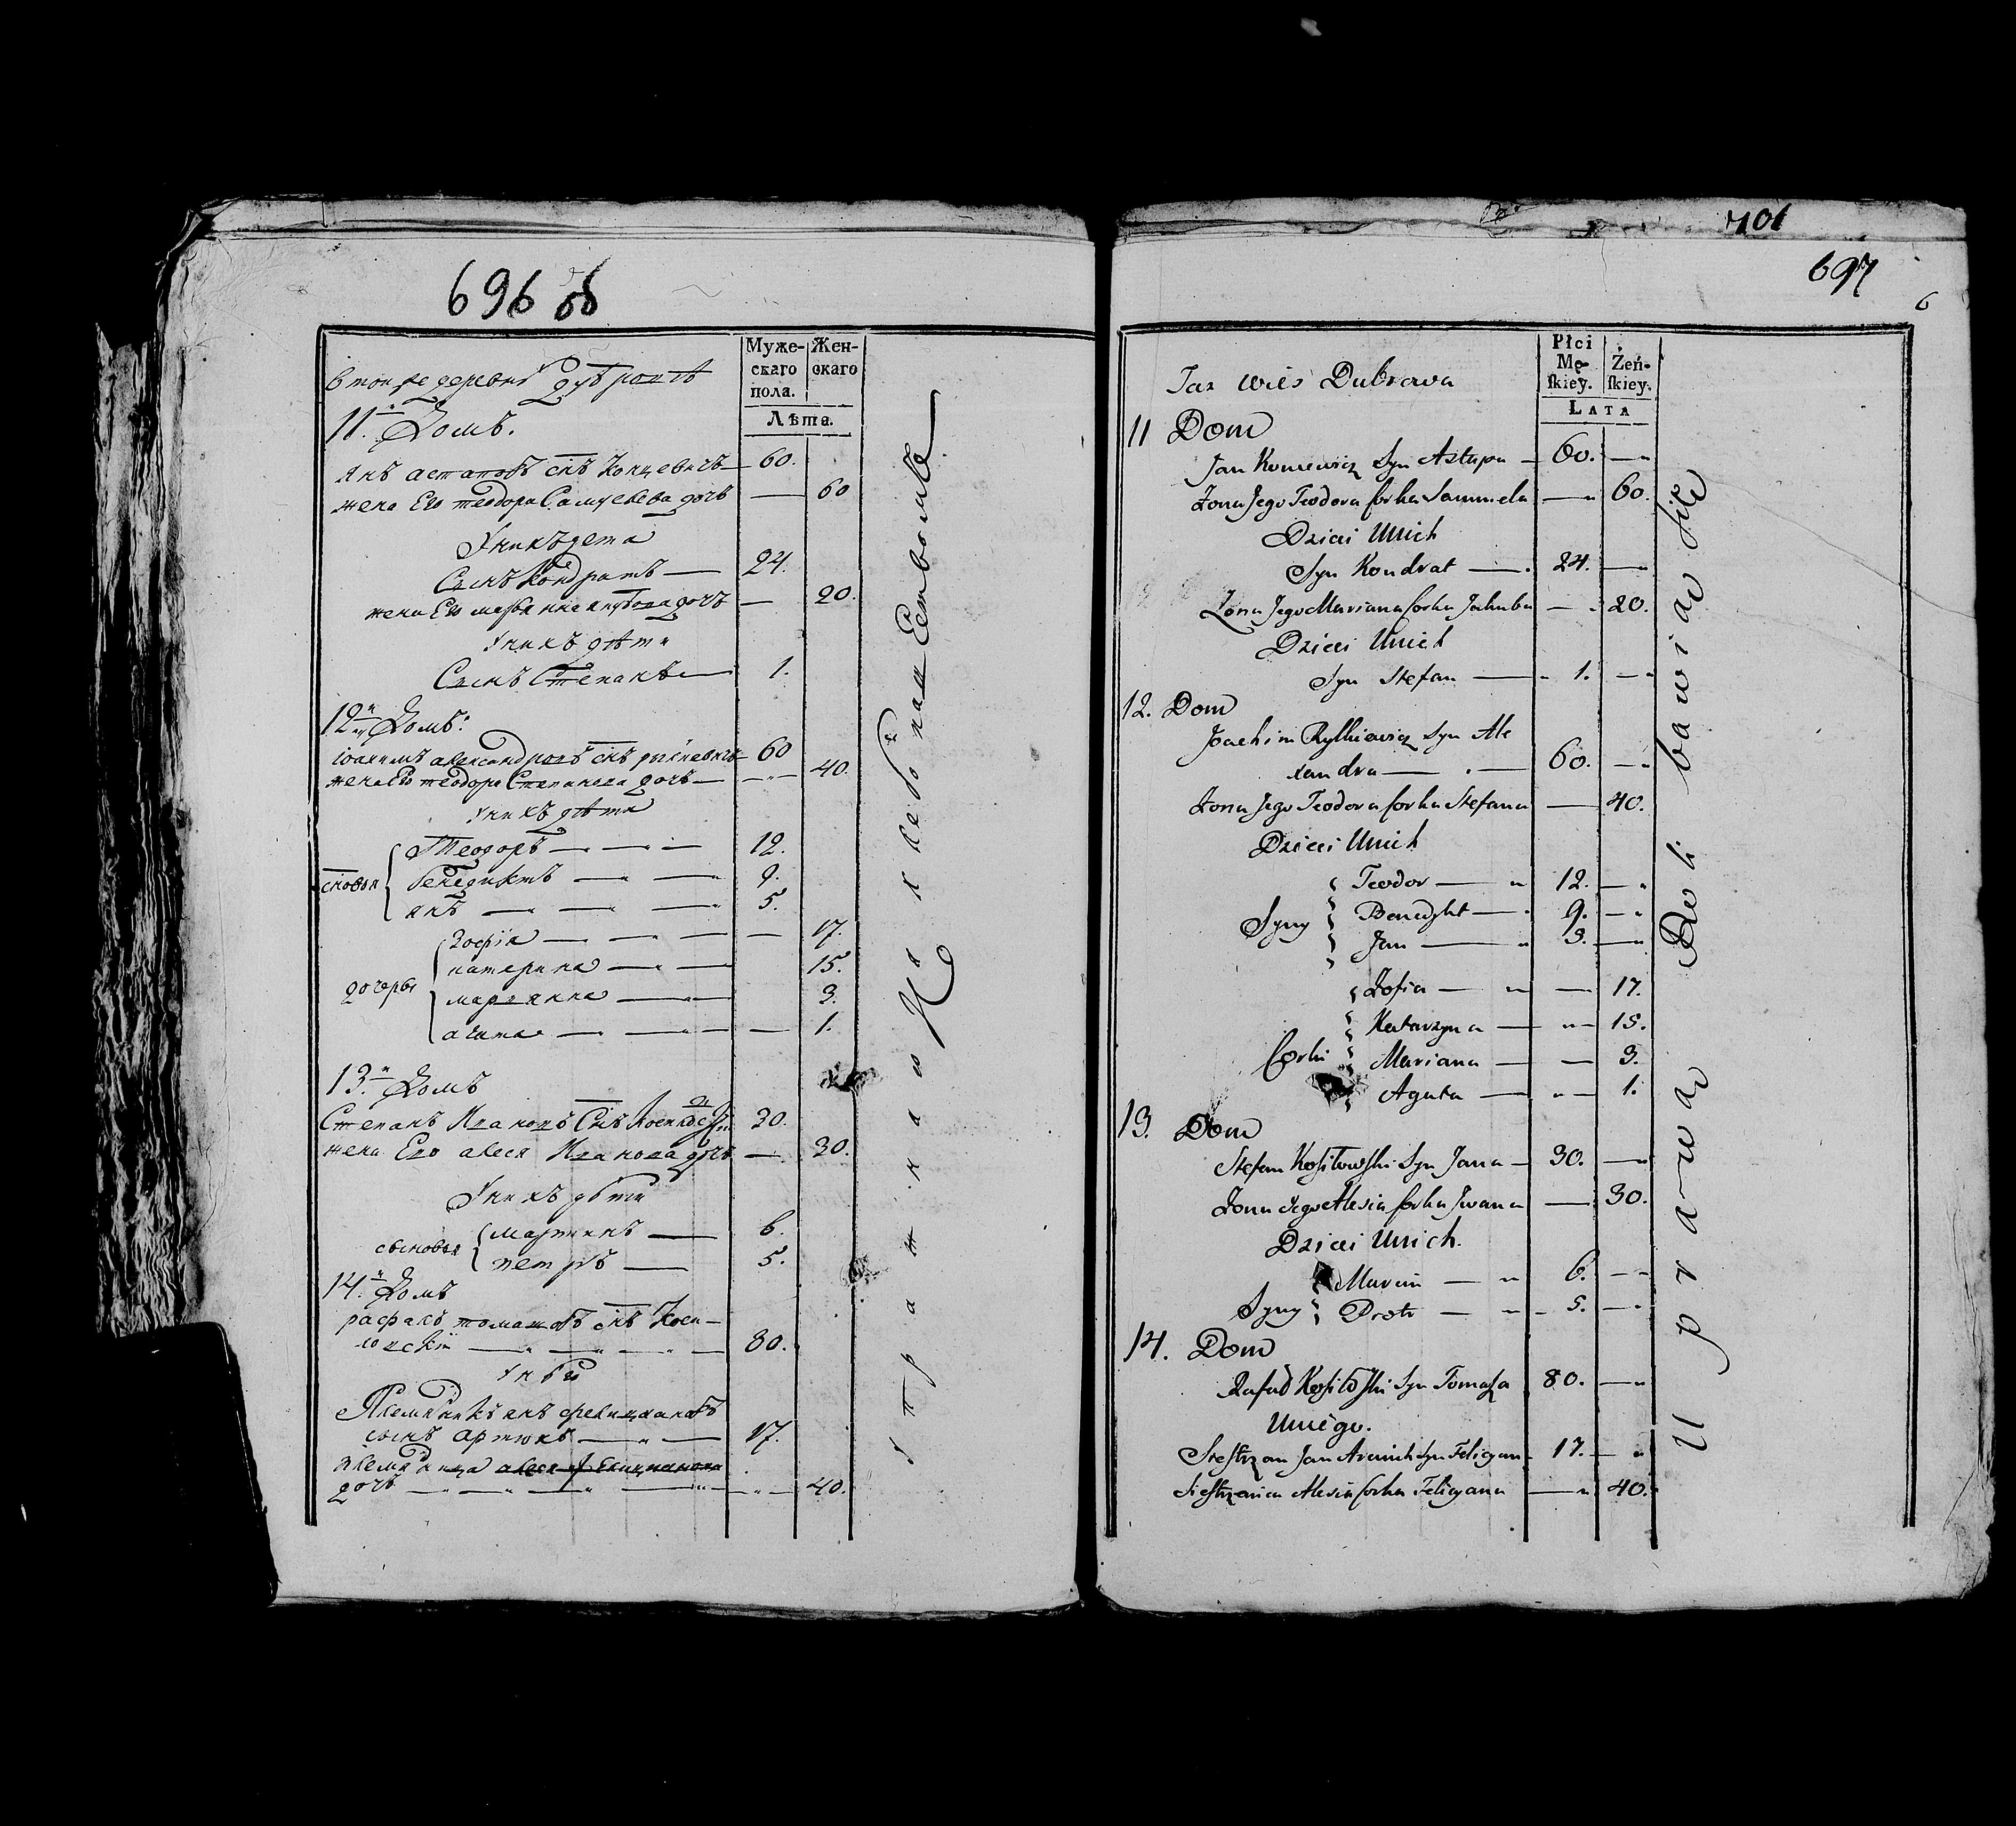 696 об
Муже-
скаго
пола.
Жен-
скаго
Лѣта.
в той же деревнѣ Дубровѣ
11.й Домъ.
Янъ астаповъ снъ Концевичъ 60.
жена Его теодора Самуелева дочь — 60
У нихъ дети
Сынъ Кондратъ — 24.
жена Его марьянна якубова дочь — 20.
У нихъ дѣти
Сынъ Степанъ — 1.
12.й Домъ.
іоахимъ александровъ снъ рылкевичъ 60
жена Его теодора Степанова дочь — 40.
У нихъ дѣти
сновья
Теодоръ — 12.
бенедиктъ — 9.
янъ — 5.
дочери
Зофія — 17.
катерина — 15.
марьянна — 3.
агата — 1.
13.й Домъ
Степанъ Ивановъ Снъ 30.
жена Его алеся Иванова дочь — 30.
У нихъ дѣти
сыновья
мартинъ — 6.
петръ — 5.
14.й Домъ
рафалъ томашовъ снъ Коси-
ловскій — 80.
У него
Племянникъ янъ фелиціановъ
сынъ артюхъ — 17.
племянница алеся фелиціанова
дочь — 40.
701
697
6
Płci
Mę-
ſkiey.
Żeń-
ſkiey.
LATA
Taz wies Dubrowa
11 Dom
Jan Koncewicz Syn Astapa — 60. —
Zona Jego Teodora Corka Sammela — 60.
Dzieci Unich
Syn Kondrat — 24. —
Zona Jego Mariana Corka Jakuba — 20.
Dzieci Unich
Syn Stefan — 1. —
12. Dom
Joachim Rylkiewicz Syn Ale
xandra — 60. —
Zona Jego Teodora Corka Stefana — 40.
Dzieci Unich
Syny
Teodor — 12. —
Benedykt — 9. —
Jan — 5. —
Corki
Zofia — 17.
Katarzyna — 15.
Mariana — 3.
Agata — 1.
13. Dom
Stefan Kosiłowski Syn Jana — 30. —
Zona Jego Alesia Corka Iwana — 30.
Dzieci Unich.
Syny
Marcin — 6. —
Piotr — 5. —
14. Dom
Rafał Syn Tomasza 80. —
Uniego.
Siestrzan Jan Syn Felicyan 17. —
Siestrzenica Alesia Corka Felicyana — 40.
Uprawą Roli bawią się